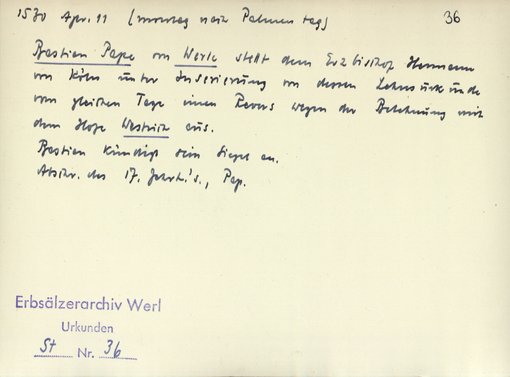 1530 Apr. 11 (montag nach Palmentag) 36
Bastien Pape von Werle stellt dem Erzbischof Hermann
von Köln unter Inserierung von dessen Lehnsurkunde
vom gleichen Tage einen Revers wegen der Belehnung mit
dem Hofe Westrich aus.
Bastien kündigt sein Siegel an.
Abschr. des 17. Jahrh.'s., Pap.
Erbsälzerarchiv Werl
Urkunden
St Nr. 36